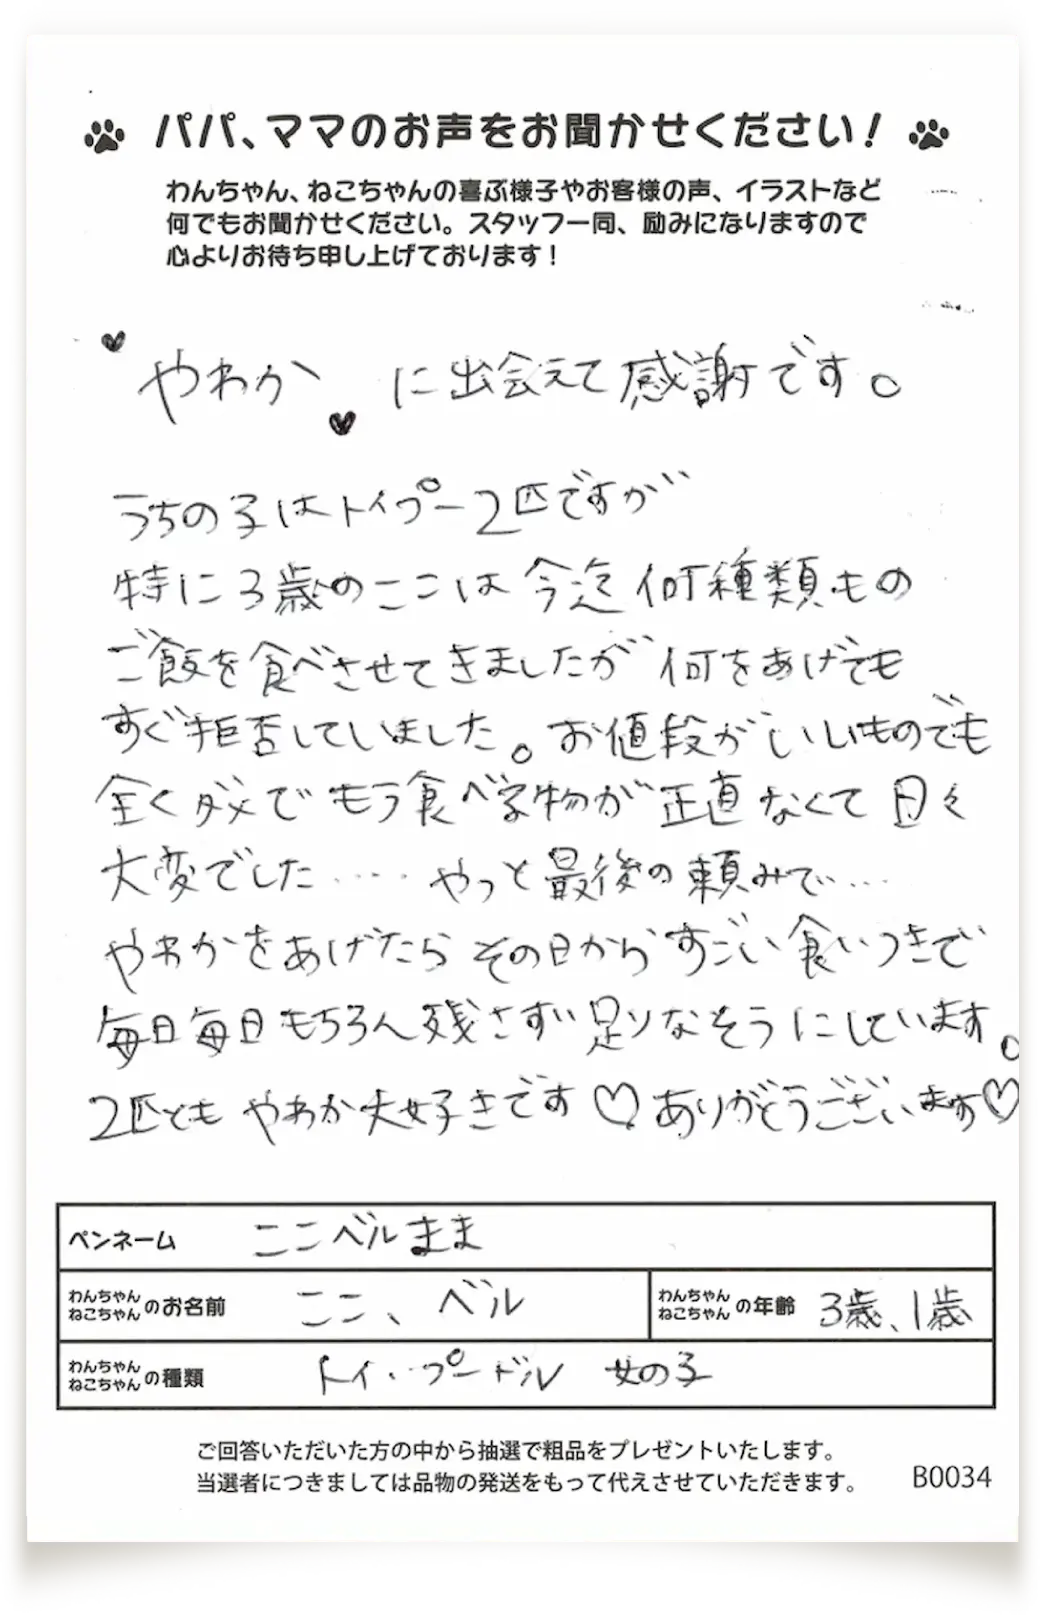 パパ、ママのお声をお聞かせください!
わんちゃん、ねこちゃんの喜ぶ様子やお客様の声、イラストなど
何でもお聞かせください。スタッフ一同、励みになりますので
心よりお待ち申し上げております!
♥やわか♥に出会えて感謝です。
うちの子はトイプー2匹ですが
特に3歳のここは今迄何種類もの
ご飯を食べさせてきましたが何をあげても
すぐ拒否していました。お値段がいいものでも
全くダメでもう食べ物が正直なくて日々
大変でした……やっと最後の頼みで…
やわかをあげたらその日からすごい食いつきで
毎日毎日もちろん残さず足りなそうにしています。
2匹ともやわか大好きです♡ありがとうございます♡
ペンネーム ここベルまま
わんちゃん ねこちゃん のお名前 ここ、ベル わんちゃん ねこちゃん の年齢 3歳、1歳
わんちゃん ねこちゃん の種類 トイ・プードル 女の子
ご回答いただいた方の中から抽選で粗品をプレゼントいたします。
当選者につきましては品物の発送をもって代えさせていただきます。 B0034